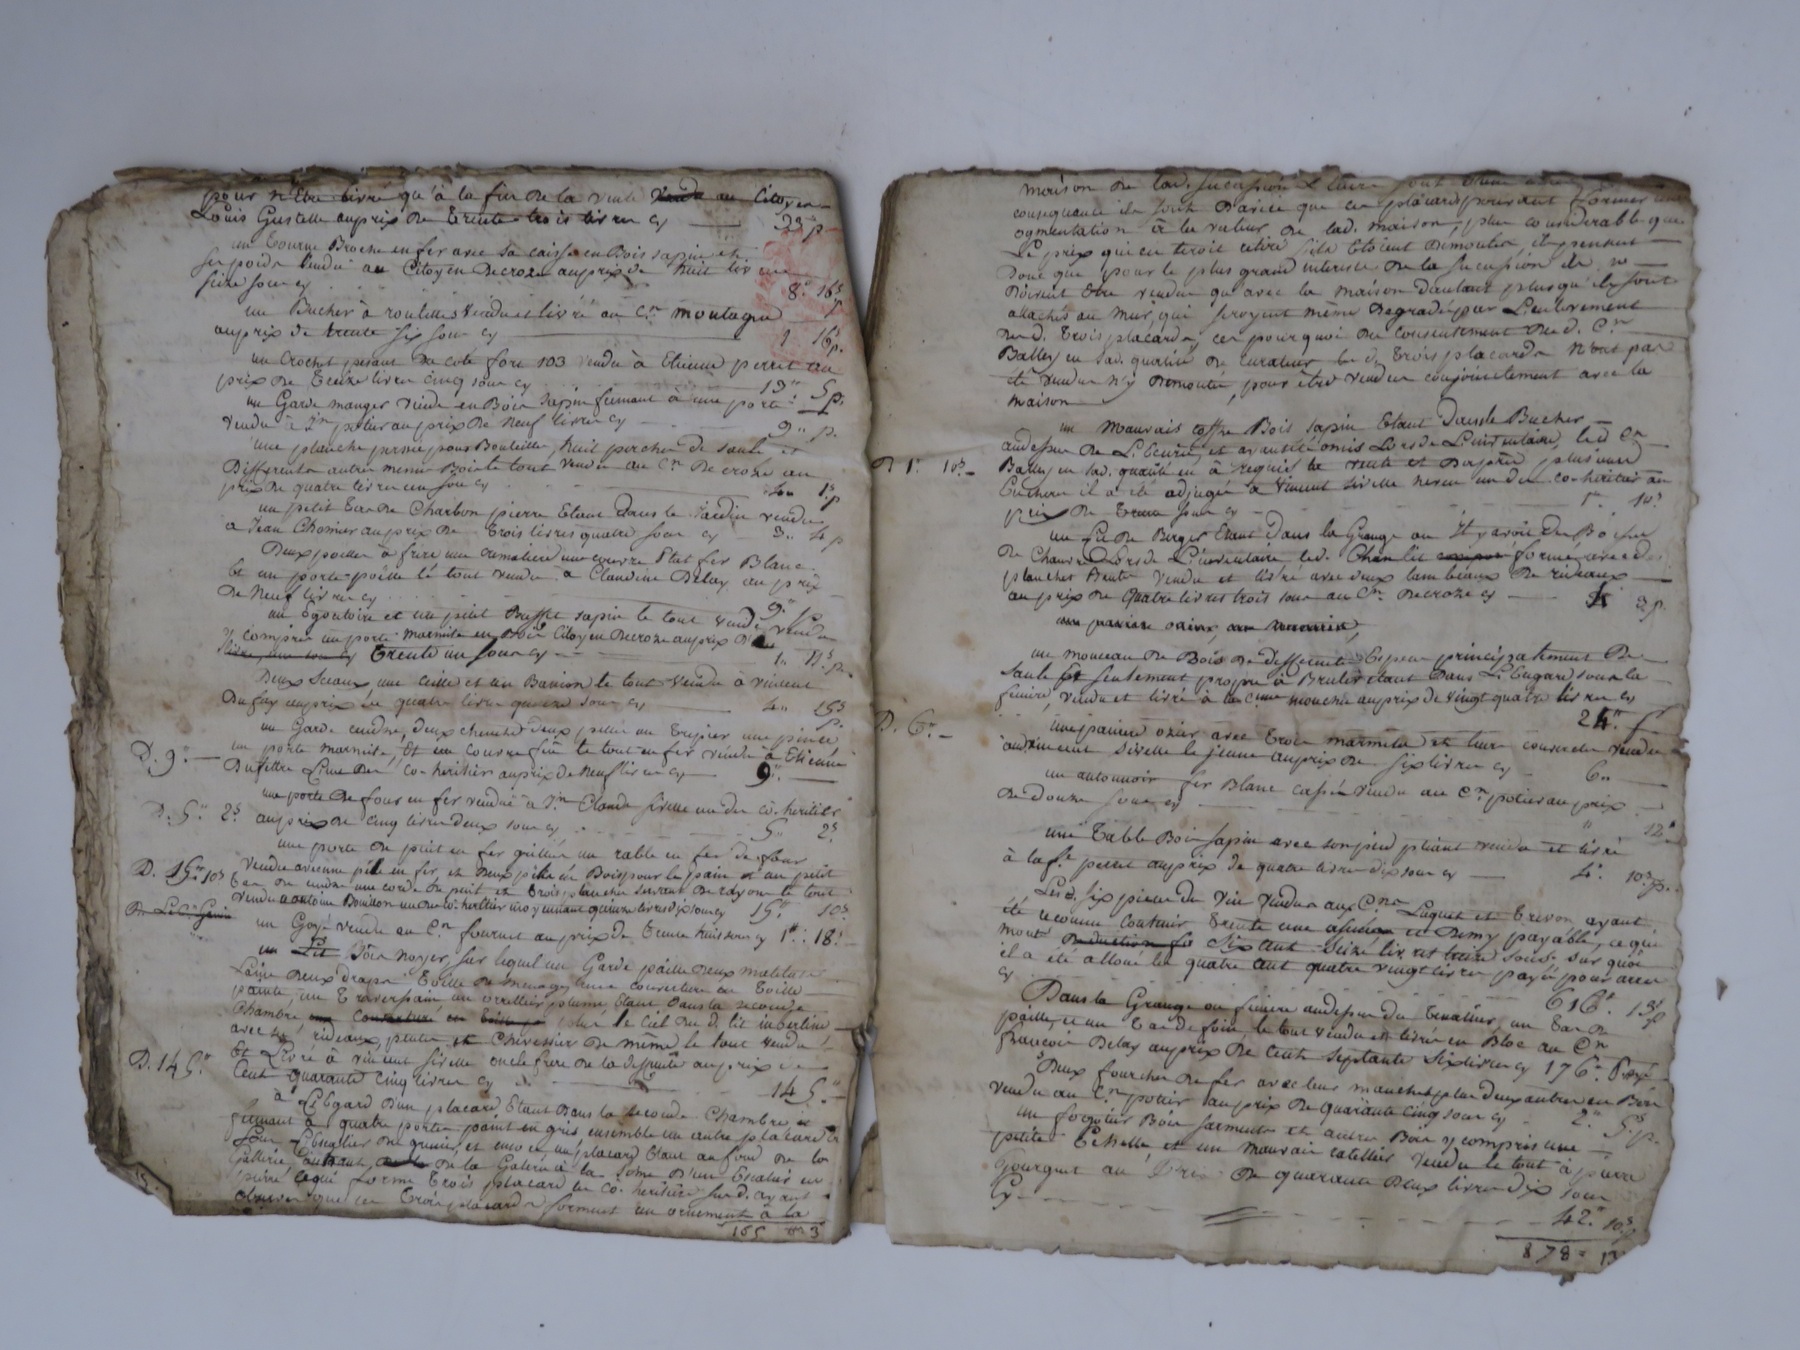 pour n'Etre livré qu'à la fin De la vente vendu au Citoyen
Louis Gustelle au prix De Trente trois livres cy 33 p
un tourne Broche en fer avec Sa caisse en Bois sapin et
ses poids Vendu au Citoyen Decroze au prix de huit livres
seize sous cy 8" 16s p
une Bucher à roulettes Vendu et livré au Cen montagne
au prix de trente six sous cy 1 16 p.
un Crochet pesant Du coté fort 103 vendu à Etienne perret au
prix De treize livres cinq sous cy 13" 5 p.
un Garde manger Vieux en Bois Sapin fermant à une porte
vendu à potier au prix De Neuf livres cy 9" p.
une planche percée pour Bouteilles, huit perches de saule et
Differents autres menus Bois le tout vendu au Cen Decroze au
prix De quatre livres un sou cy 4" 1s p
un petit tas De Charbon pierre Etant Dans le Jardin vendu
à Jean Chomier au prix De trois livres quatre sous cy 3" 4 p
Deux poelles à frire une cremaliere une couvre Plat fer Blanc
et un porte poêlle le tout vendu à Claudine Delay au prix
De Neuf livres cy 9" p
un Egoutoire et un petit Buffet sapin le tout vendu
y compris un porte marmite en Bois Citoyen Decroze au prix De
trente un sous cy 1" 11s p
Deux Sceaux une ceille et un Banion le tout vendu à vincent
Dufay au prix De quatre livres quinze sous cy 4" 15s p.
un Garde cendre, deux chenets deux pelles un trepier une pince
un porte marmite, Et un couvre feu le tout en fer vendu à Etienne
D. 9" Dufettre L'un Des Co-heritiers au prix de Neuf livres cy 9"
une porte De four en fer vendue à Jn Claude Sivelle un des co-heritiers
D. 5" 2s au prix De cinq livres deux sous cy 5" 2s
une porte De puit en fer grillée un rable en fer de four
D. 15" 10s vendu avec une péle en fer, et Deux péles en Bois pour le pain et un petit
tas De cendre une corde De puit et trois planches servant De rayons le tout
vendu a antoine Bouillon un des co-heritiers moyennant quinze livres dix sous cy 15" 10s
un Goye vendu au Cen fournet au prix de trente huit sous cy 1" : 18s
un Lit Bois Noyer, sur lequel un Garde paille Deux mattelats
Laine Deux draps toille De menage une couverture en toille
peinte, un traversain un oreillier plume, Etant Dans la seconde
Chambre une couverture en toille le Ciel Du d. lit imberline
avec ses rideaux, pentes et Chevessier De même le tout vendu
Et Livré à vincent Sivelle oncle frere De la deffunte au prix de
D. 145" Cent quarante cinq livres cy 145"
à L'Egard D'un placard Etant Dans la seconde Chambre et
fermant à quatre portes peint en gris ensemble un autre placard
sur L'Escalier Du grenier, et encore un placard Etant au fond De la
Gallerie, Entrant De la Galerie à la Some D'un Escalier en
pierre ce qui forme trois placards les Co-heritiers sus d. ayant
observé que ces trois placards forment un ornement à la
165 3
maison De lad. succession
consequance ils sont D'avis que ces placards pourroit former une
ogmentation à la valeur De lad. maison, plus considerable que
Le prix qui en seroit retiré s'ils Etoient Demontés ils pensent
Donc que pour le plus grand interest De la succession ils ne
Doivent Etre vendus qu'avec la maison D'autant plus qu'ils sont
attachés au mur, qui seroyent même Degradé par L'enlevement
Desd. trois placards, ces pourquoi Du consentement Dud. Cen
Balley en sad. qualité De curateur les d. trois placards N'ont pas
été vendus n'y Demontés, pour être vendus conjointement avec la
maison
un mauvais coffre Bois Sapin Etant Dans le Bucher
audessus De L'Ecurie, et ayant été omis Lors de L'inventaire, led. Cen
D 1" 10s Balley en sad. qualité en à requis la vente et Duprès plusieurs
Encheres il a été adjugée à Vincent Sivelle neveu un des co-heritiers au
prix De trente sous cy 1" 10s
un fût De Berger Etant Dans la Grange ou il y avoit Du Bois
De Chauvre Lors de L'inventaire led. Chanlit formé avec des
planches Brute vendu et livré avec deux lambeaux De rideaux
au prix De quatre livres trois sous au Cen Decroze cy 4 3 p.
un monceau De Bois De differente Especes principalement De
saule Et seulement propre à Bruler etant Dans L'Engard sous la
feniere, vendu et livré à la Cenne mouchte au prix de vingt quatre livres cy
24" p
une paniere ozier avec trois marmites et leurs couvercles vendu
D. 6" à vincent Sivelle le jeune au prix De six livres cy 6"
un antonnoir fer Blanc cassé vendu au Cen potier au prix
De Douze sous cy " 12s
une table Bois sapin avec son pied pliant vendu et livré
à la fe perret au prix De quatre livres dix sous cy 4" 10s p.
Les d. six pieces De vin vendus aux Cens Luquet et Trevon ayant
été reconnu Contenir trente une asnées et Demy payable, ce qui
mont Deduction fe Six Cent Seize livres treize sous sur quoi
il a été alloué les quatre cent quatre vingt livres payé pour arres
cy 616" 13s p
Dans la Grange ou feniere au dessus du tenalier, un tas De
paille, et un tas De foin le tout vendu et livré en Bloc au Cen
francois Delay au prix De Cent septante six livres cy 176" payé
Deux fourches De fer avec leurs manches plus Deux autres en Bois
vendu au Cen potier au prix De quarante cinq sous cy 2" 5s p.
un fagotier Bois sarments et autres Bois y compris une
petite Echelle et un mauvais ratellier vendu le tout à pierre
Gourguet au Prix De quarante Deux livres dix sous
cy 42" 10s
878" 13